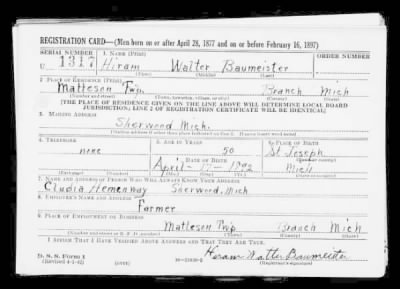 REGISTRATION CARD—(Men born on or after April 28, 1877 and on or before February 16, 1897)
SERIAL NUMBER 1. NAME (Print) ORDER NUMBER
U 1317 Hiram Walter Baumeister
(First) (Middle) (Last)
2. PLACE OF RESIDENCE (Print)
Matteson Twp. Branch Mich
(Number and street) (Town, township, village, or city) (County) (State)
[THE PLACE OF RESIDENCE GIVEN ON THE LINE ABOVE WILL DETERMINE LOCAL BOARD
JURISDICTION; LINE 2 OF REGISTRATION CERTIFICATE WILL BE IDENTICAL]
3. MAILING ADDRESS
Sherwood Mich.
[Mailing address if other than place indicated on line 2. If same insert word same]
4. TELEPHONE 5. AGE IN YEARS 6. PLACE OF BIRTH
none 50 St Joseph
DATE OF BIRTH (Town or county)
April-17-1892 Mich
(Mo.) (Day) (Yr.) (State or country)
7. NAME AND ADDRESS OF PERSON WHO WILL ALWAYS KNOW YOUR ADDRESS
Cludia Hemenway Sherwood, Mich
8. EMPLOYER'S NAME AND ADDRESS
Farmer
9. PLACE OF EMPLOYMENT OR BUSINESS
Matteson Twp. Branch Mich
(Number and street or R. F. D. number) (Town) (County) (State)
I AFFIRM THAT I HAVE VERIFIED ABOVE ANSWERS AND THAT THEY ARE TRUE.
D. S. S. Form 1
(Revised 4-1-42) (over) Hiram Walter Baumeister
(Registrant's signature)